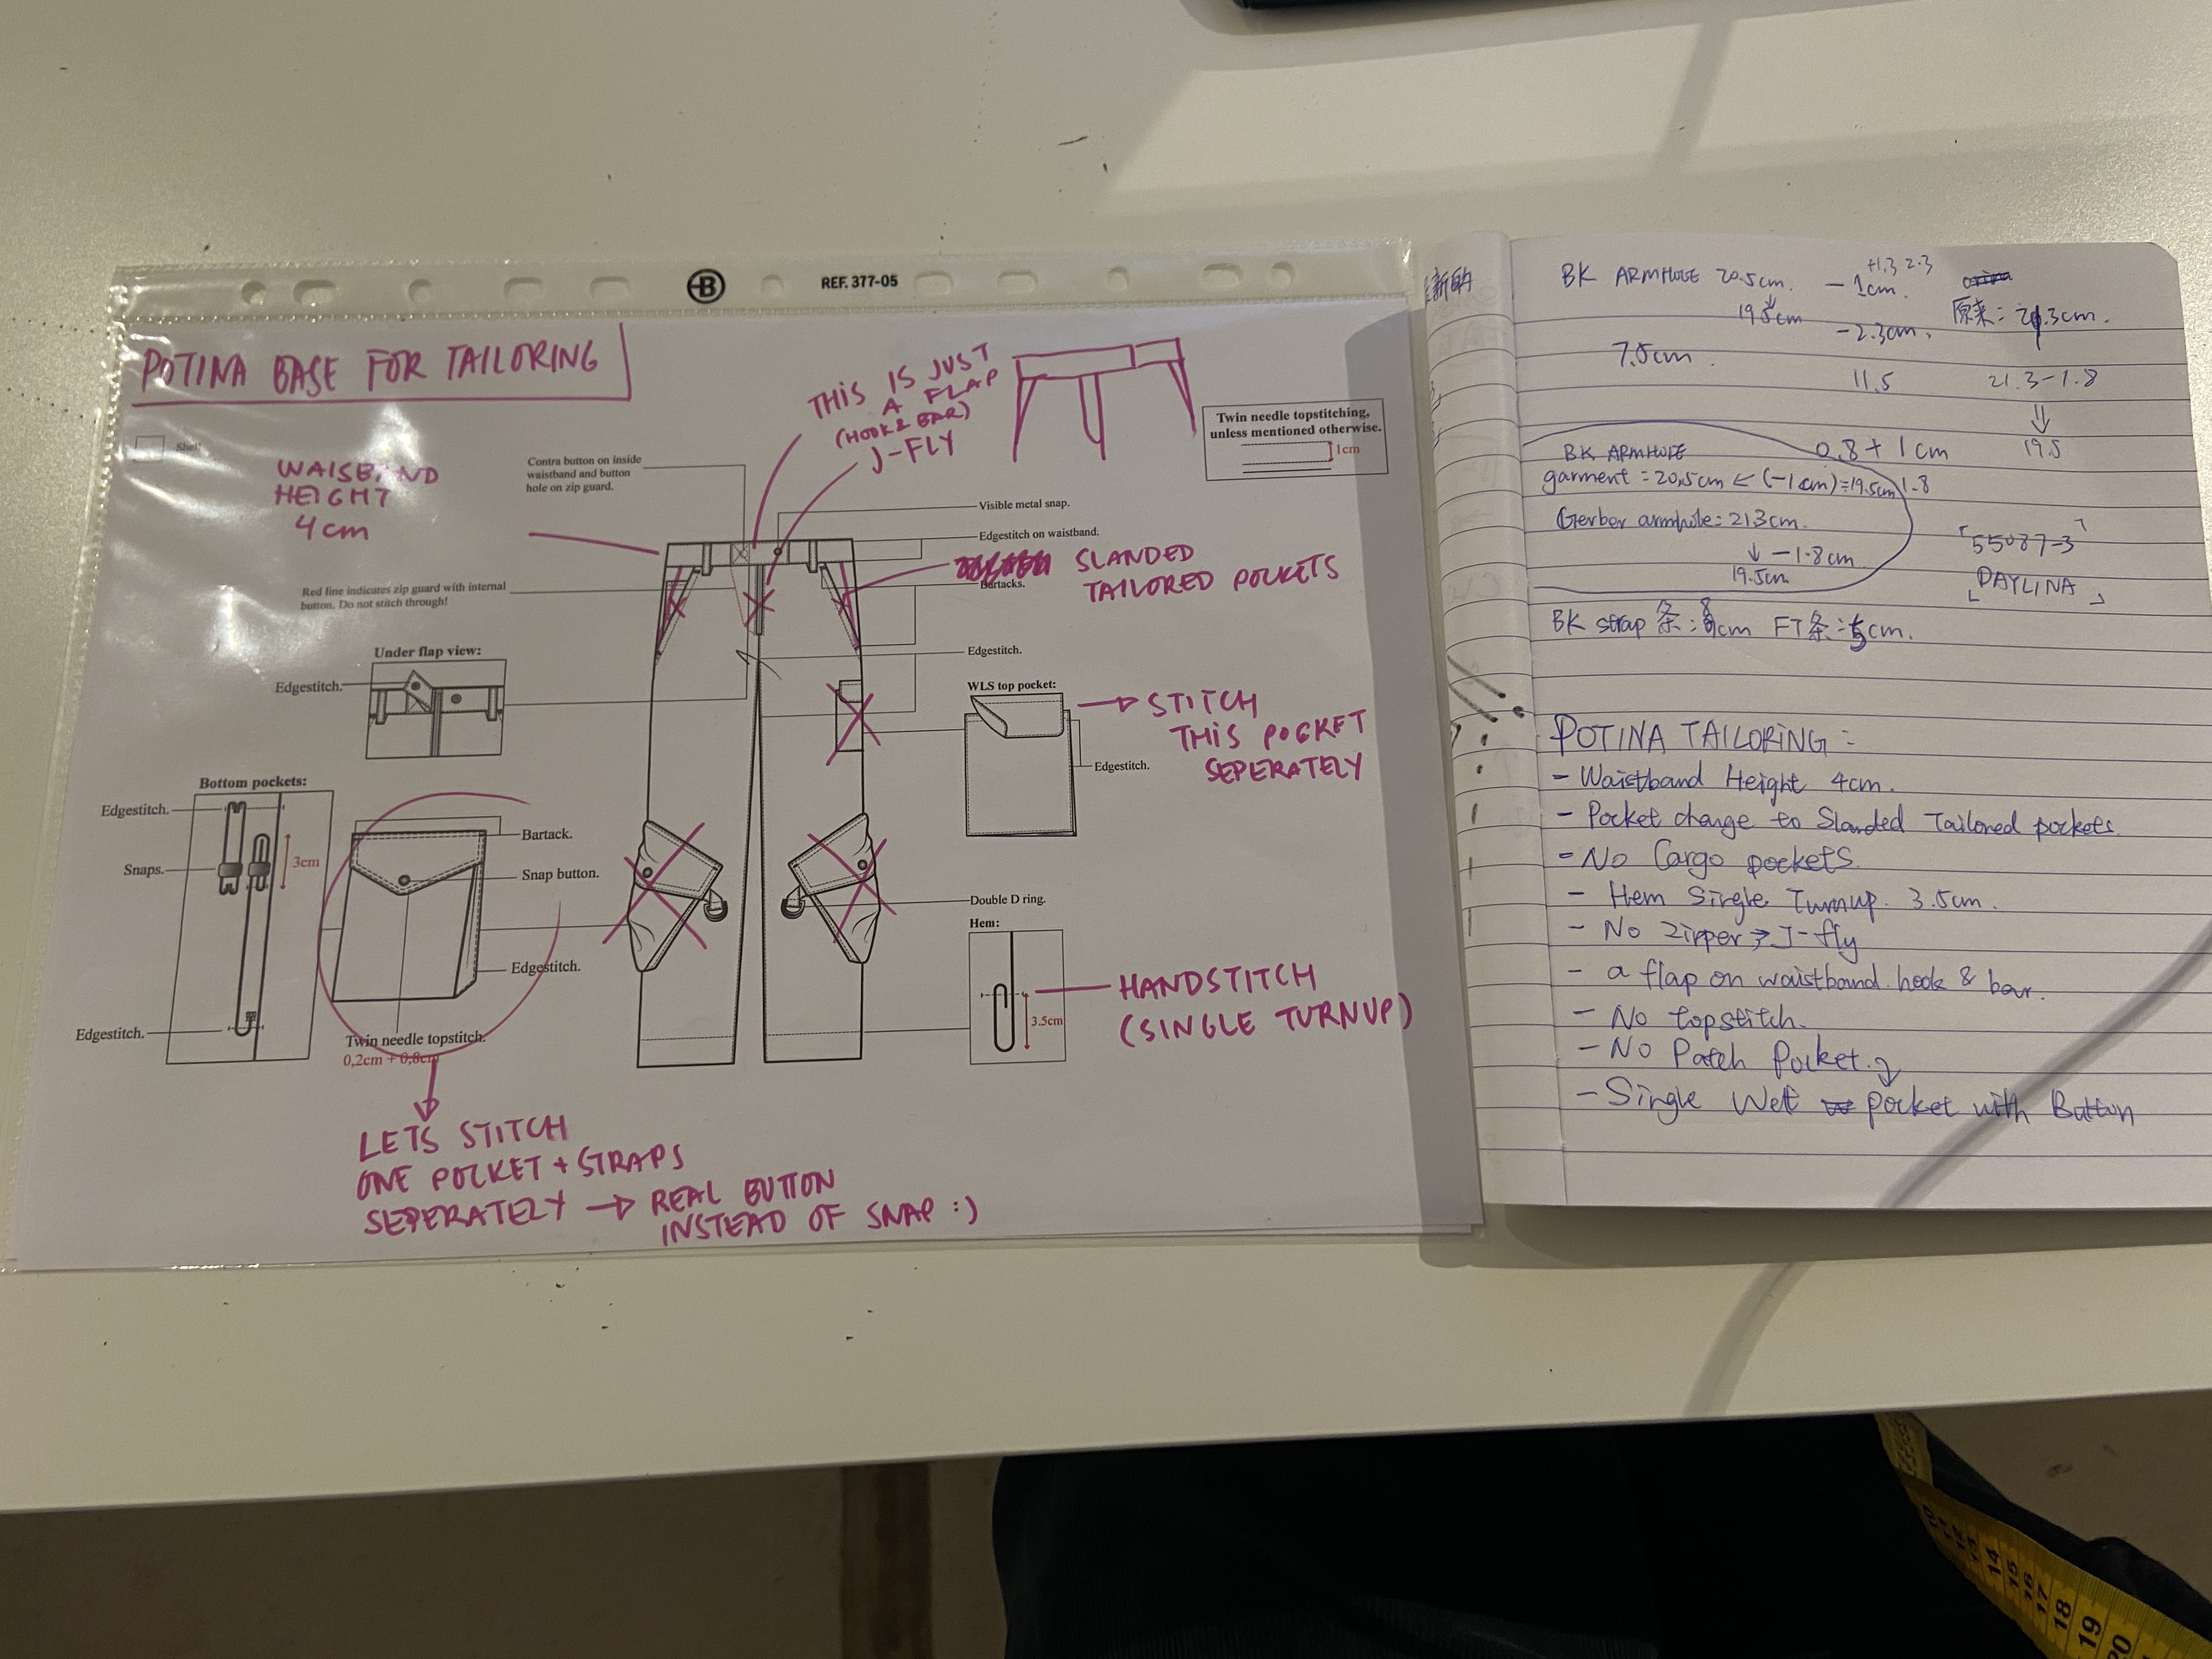 REF. 377-05
POTINA BASE FOR TAILORING
THIS IS JUST
A FLAP
(HOOK & BAR)
J-FLY
Twin needle topstitching,
unless mentioned otherwise.
1cm
Shell
WAISBAND
HEIGHT
4cm
Contra button on inside
waistband and button
hole on zip guard.
Visible metal snap.
Edgestitch on waistband.
SLANDED
TAILORED POCKETS
Bartacks.
Red line indicates zip guard with internal
button. Do not stitch through!
Under flap view:
Edgestitch.
Edgestitch.
WLS top pocket:
STITCH
THIS POCKET
SEPERATELY
Edgestitch.
Bottom pockets:
Edgestitch.
Snaps.
3cm
Edgestitch.
Bartack.
Snap button.
Edgestitch.
Twin needle topstitch.
0,2cm + 0,8cm
Double D ring.
Hem:
3.5cm
HANDSTITCH
(SINGLE TURNUP)
LETS STITCH
ONE POCKET + STRAPS
SEPERATELY → REAL BUTTON
INSTEAD OF SNAP :)
新的
BK ARMHOLE 20.5cm. -1cm. +1.3 2.3
19.5cm -2.3cm. 原来: 21.3cm.
7.5cm. 11.5 21.3-1.8
0.8 + 1cm 19.5
BK ARMHOLE
garment = 20.5cm ← (-1cm) = 19.5cm 1.8
Gerber armhole: 21.3cm.
↓ -1.8cm
19.5cm
「55087-3」
「DAYLINA」
BK strap 条: 8cm FT条: 5cm.
POTINA TAILORING:
- Waistband Height 4cm.
- Pocket change to Slanded Tailored pockets
- No Cargo pockets.
- Hem Single Turnup. 3.5cm.
- No Zipper → J-fly
- a flap on waistband. hook & bar.
- No topstitch.
- No Patch Pocket.
- Single Welt pocket with Button
10
11
12
13
14
15
16
17
18
19
20